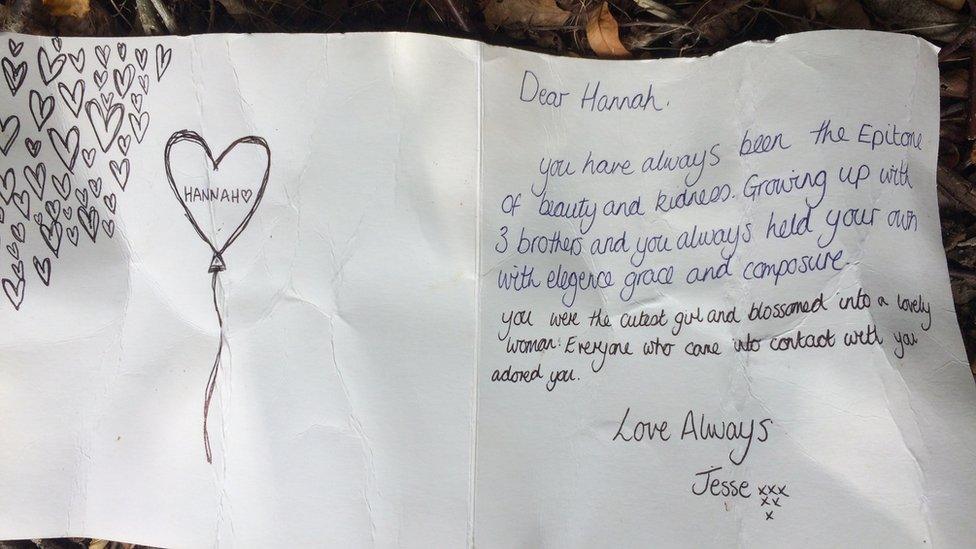 HANNAH♡
Dear Hannah.
you have always been the Epitome
of beauty and kidness. Growing up with
3 brothers and you always held your own
with elegence grace and composure.
you were the cutest girl and blossomed into a lovely
woman. Everyone who came into contact with you
adored you.
Love Always
Jesse xxx
xx
x